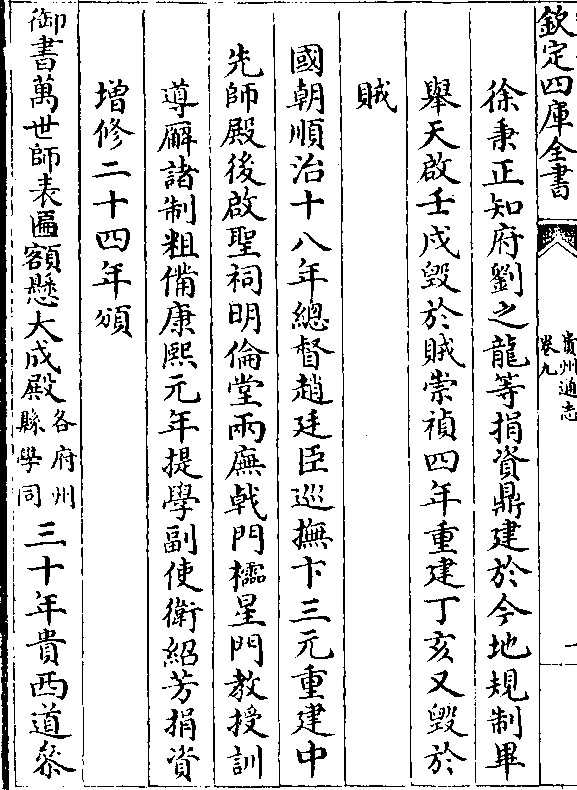 欽定四庫全書
貴州通志
卷九
徐秉正知府劉之龍等捐資鼎建於今地規制畢
舉天啟壬戌毀於賊崇禎四年重建丁亥又毀於
賊
國朝順治十八年總督趙廷臣巡撫卞三元重建中
先師殿後啟聖祠明倫堂兩廡㦸門櫺星門教授訓
導廨諸制粗備康熙元年提學副使衛紹芳捐資
增修二十四年頒
御書萬世師表匾額懸大成殿各府州縣學同三十年貴西道叅